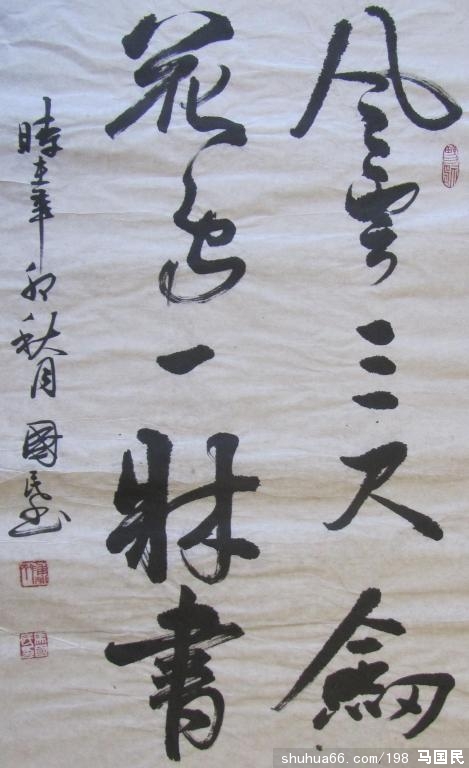 风雲三尺劒
花鳥一牀書
時在辛卯秋月國民书
shuhua66.com/198 马国民